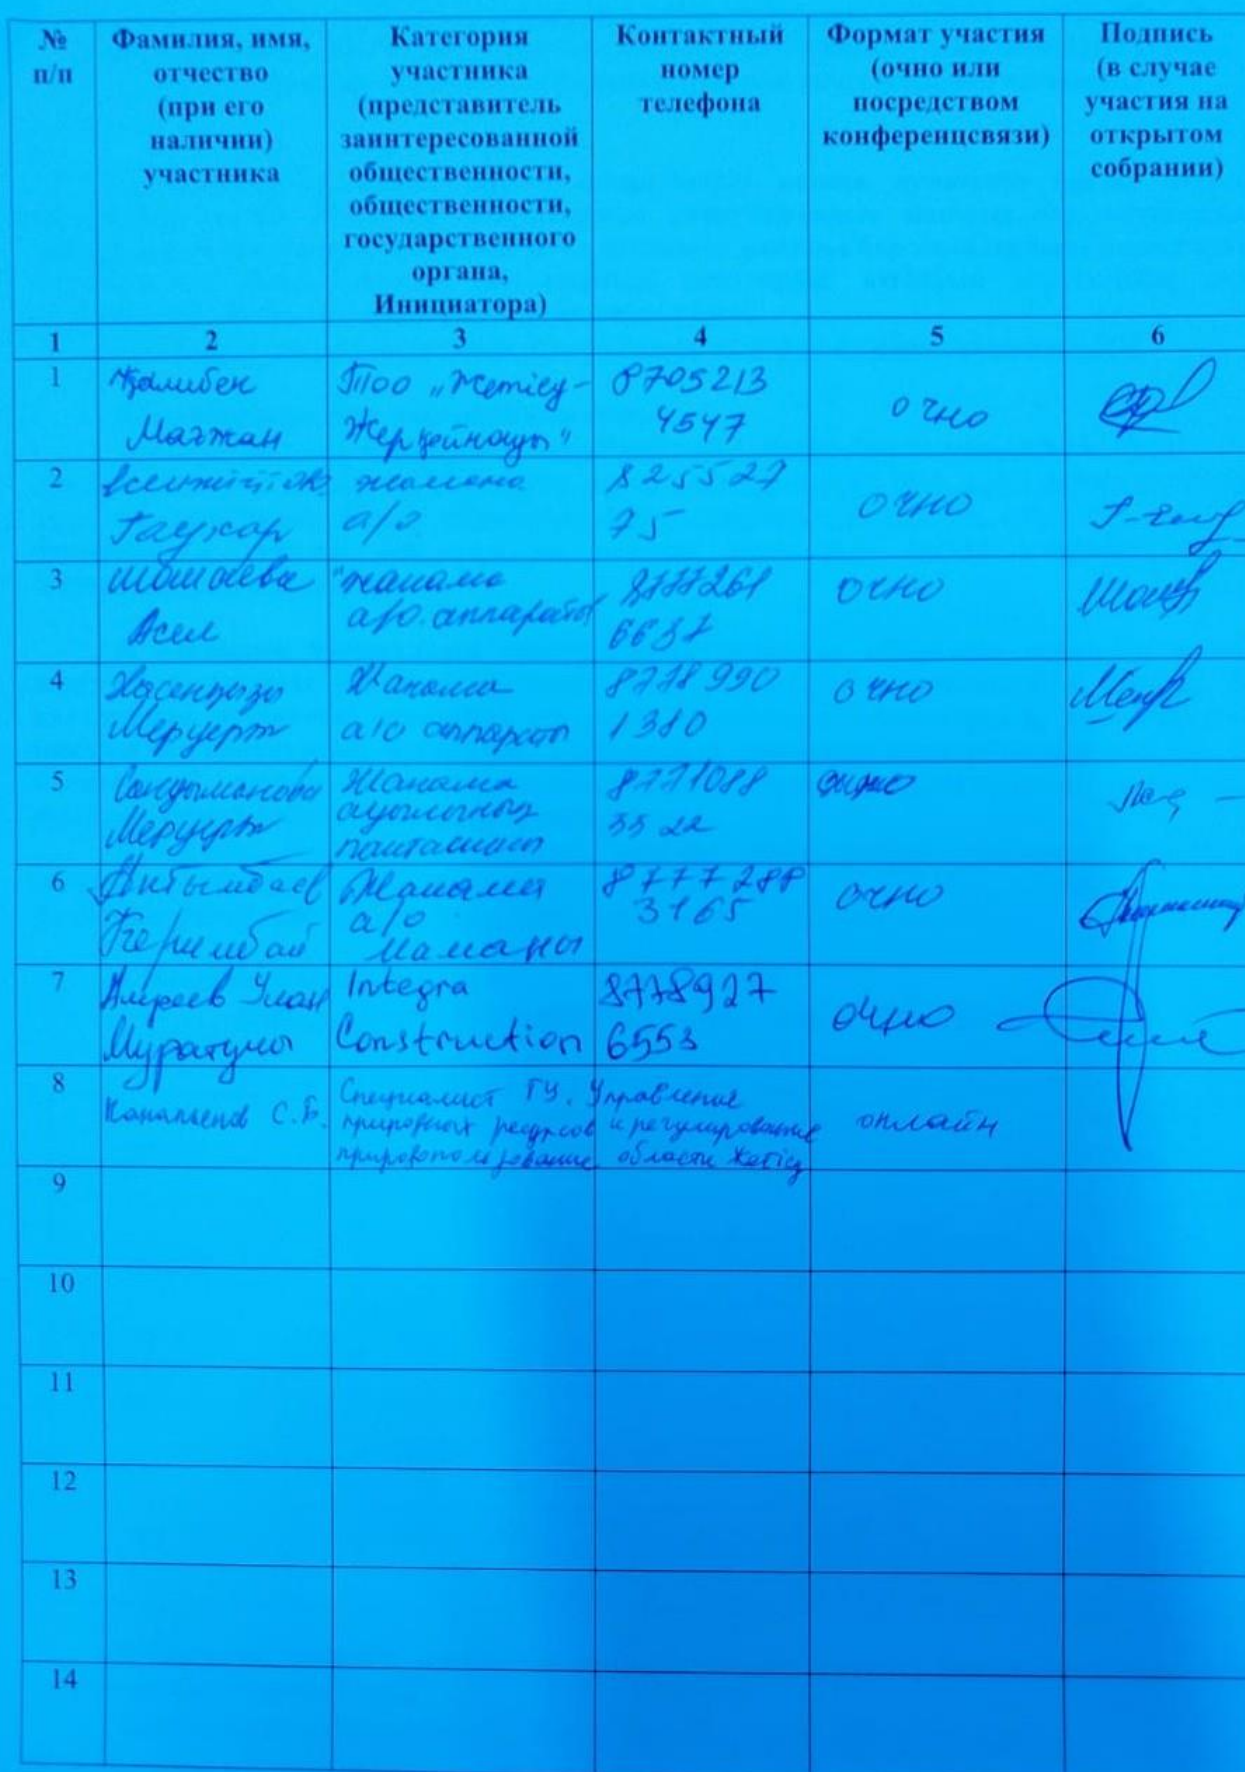 №
п/п
Фамилия, имя,
отчество
(при его
наличии)
участника
Категория
участника
(представитель
заинтересованной
общественности,
общественности,
государственного
органа,
Инициатора)
Контактный
номер
телефона
Формат участия
(очно или
посредством
конференцсвязи)
Подпись
(в случае
участия на
открытом
собрании)
1 2 3 4 5 6
1
Мағжан
ТОО „Жетісу-
Жерқойнауы"
8705213
4547
очно
2
Гаухар
а/о
825527
75
очно
3
Шошаева
Асел
а/о аппараты
8777261
очно
4
Хасенқызы
Меруерт
Жалаңаш
а/о аппарат
8778990
1380
очно
5
Меруерт
8771088
3522
очно
6
Керимбай
а/о
маманы
8777288
3165
очно
7
Амреев Улан
Муратұлы
Integra
Construction
8778927
6553
очно
8
С.Б.
Специалист ГУ. Управление
природных ресурсов и регулирование
природопользование области Жетісу
онлайн
9
10
11
12
13
14